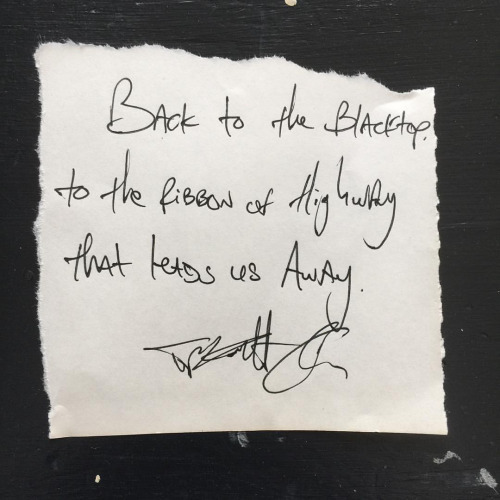 Back to the Blacktop.
to the Ribbon of Highway
that leads us Away.